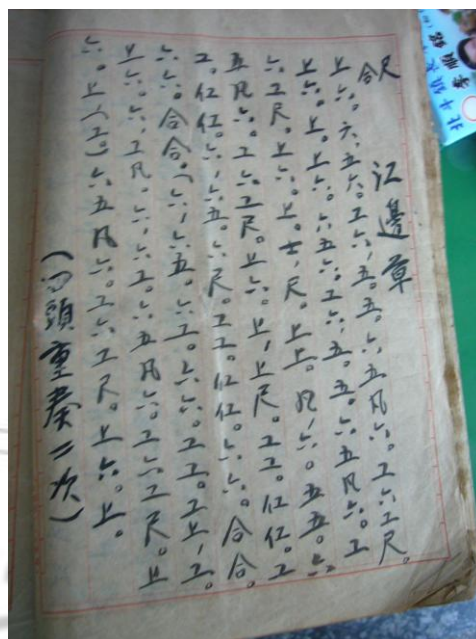 江邊章
合尺
上六。六,五六。工六,五。五。六五凡六。工六工尺。
上六。上。上六。六五六。工六,五。五。六五凡六。工
六工尺。上六。上。士,尺。上上。凡,六。五五。六
五凡六。工六工尺。上六。上,上尺。工工。仜仜。工
工。仜仜。六,六五。六尺。工工。仜仜。六六。合合。
六六。合合。(六,六五。六工。六六。工工。工上,工。
上六。六,工凡。六,六工。六五凡六。工六工尺。上
六。上(工。)六五凡六。工六工尺。上六。上。
(回頭重奏二次)
北斗鎮